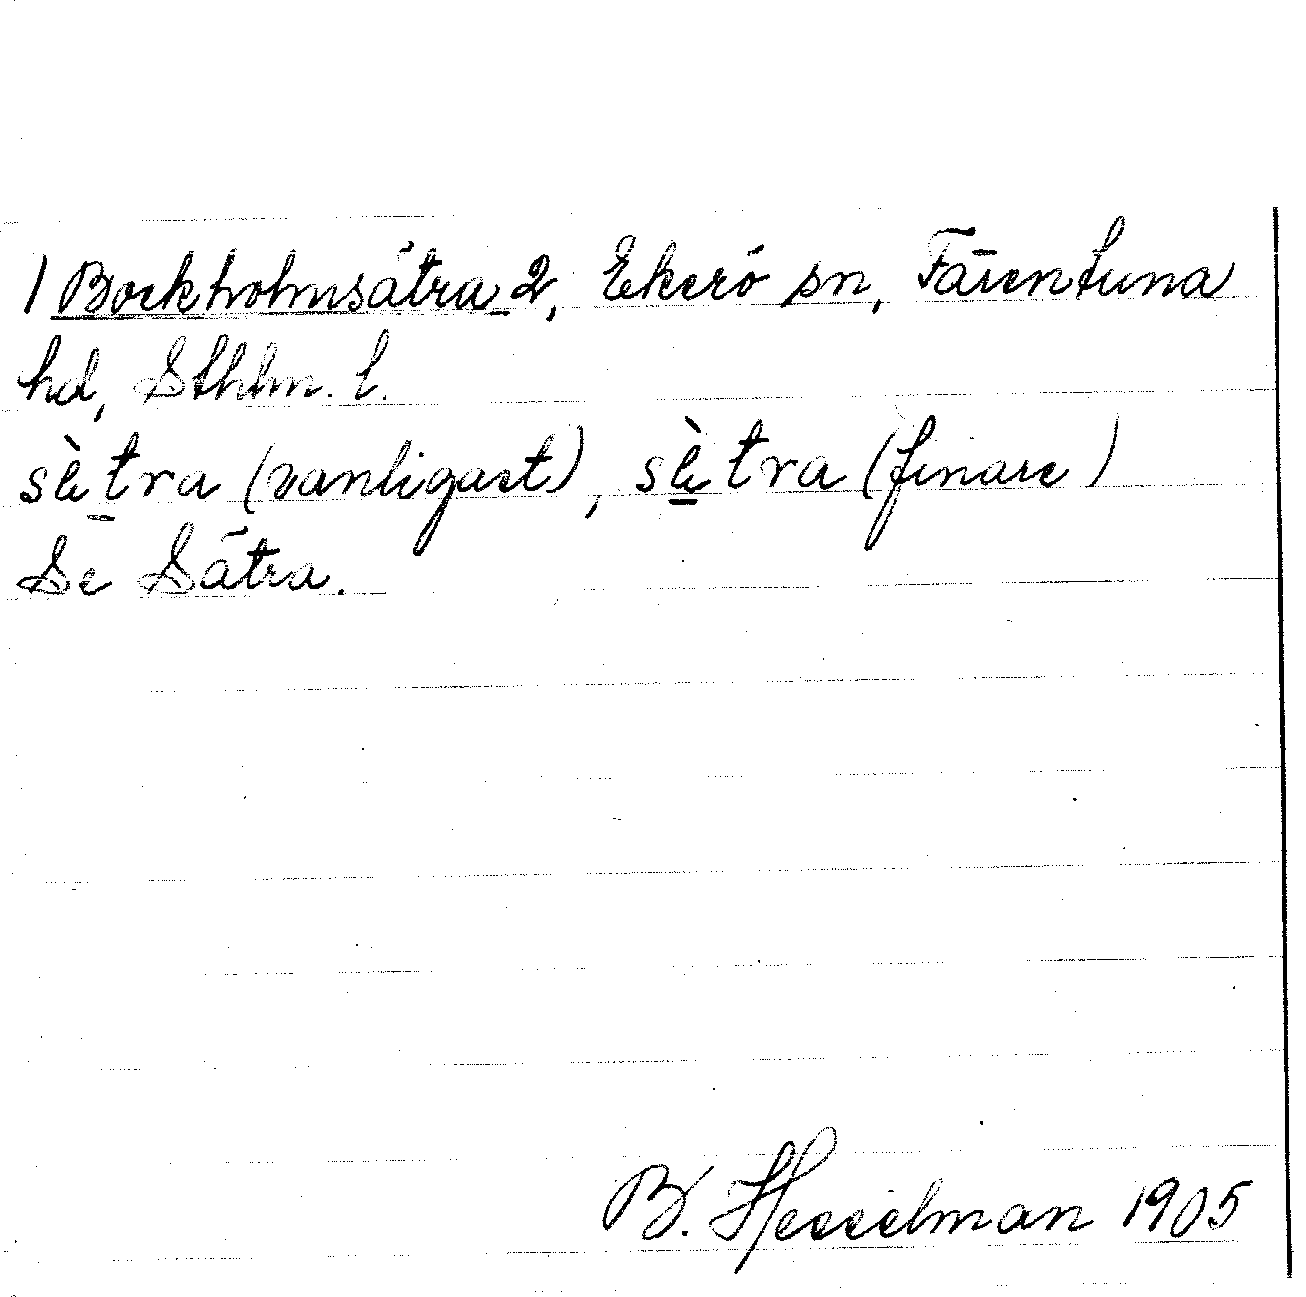 1 Bockholmsätra 2, Ekerö sn, Färentuna
hd, Sthlm. l.
sètra (vanligast), sètra (finare)
Se Sätra.
B. Hesselman 1905